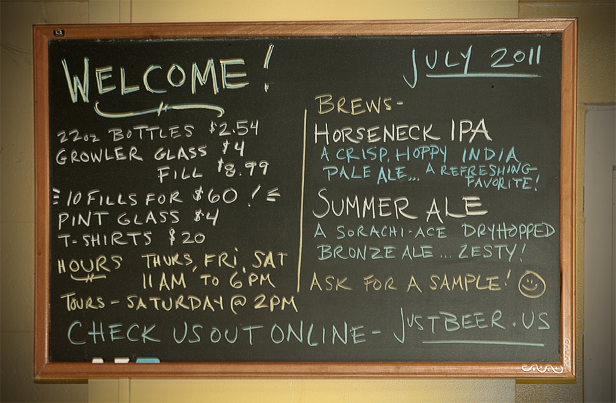 WELCOME!
22oz BOTTLES $2.54
GROWLER GLASS $4
FILL $8.99
10 FILLS FOR $60!
PINT GLASS $4
T-SHIRTS $20
HOURS THURS, FRI, SAT
11AM, TO 6PM
TOURS - SATURDAY @ 2PM
JULY 2011
BREWS-
HORSENECK IPA
A CRISP, HOPPY INDIA
PALE ALE... A REFRESHING
FAVORITE!
SUMMER ALE
A SORACHI-ACE DRYHOPPED
BRONZE ALE... ZESTY!
ASK FOR A SAMPLE!
CHECK US OUT ONLINE - JUSTBEER.US